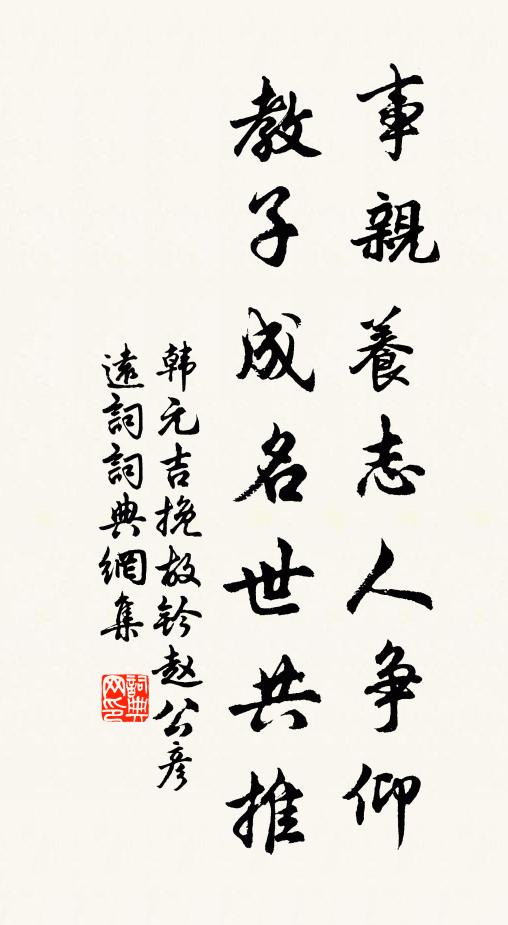 事親養志人争仰
教子成名世共推
韩元吉挽故鈐赵公彦
遠詞詞典網集
詞典网印